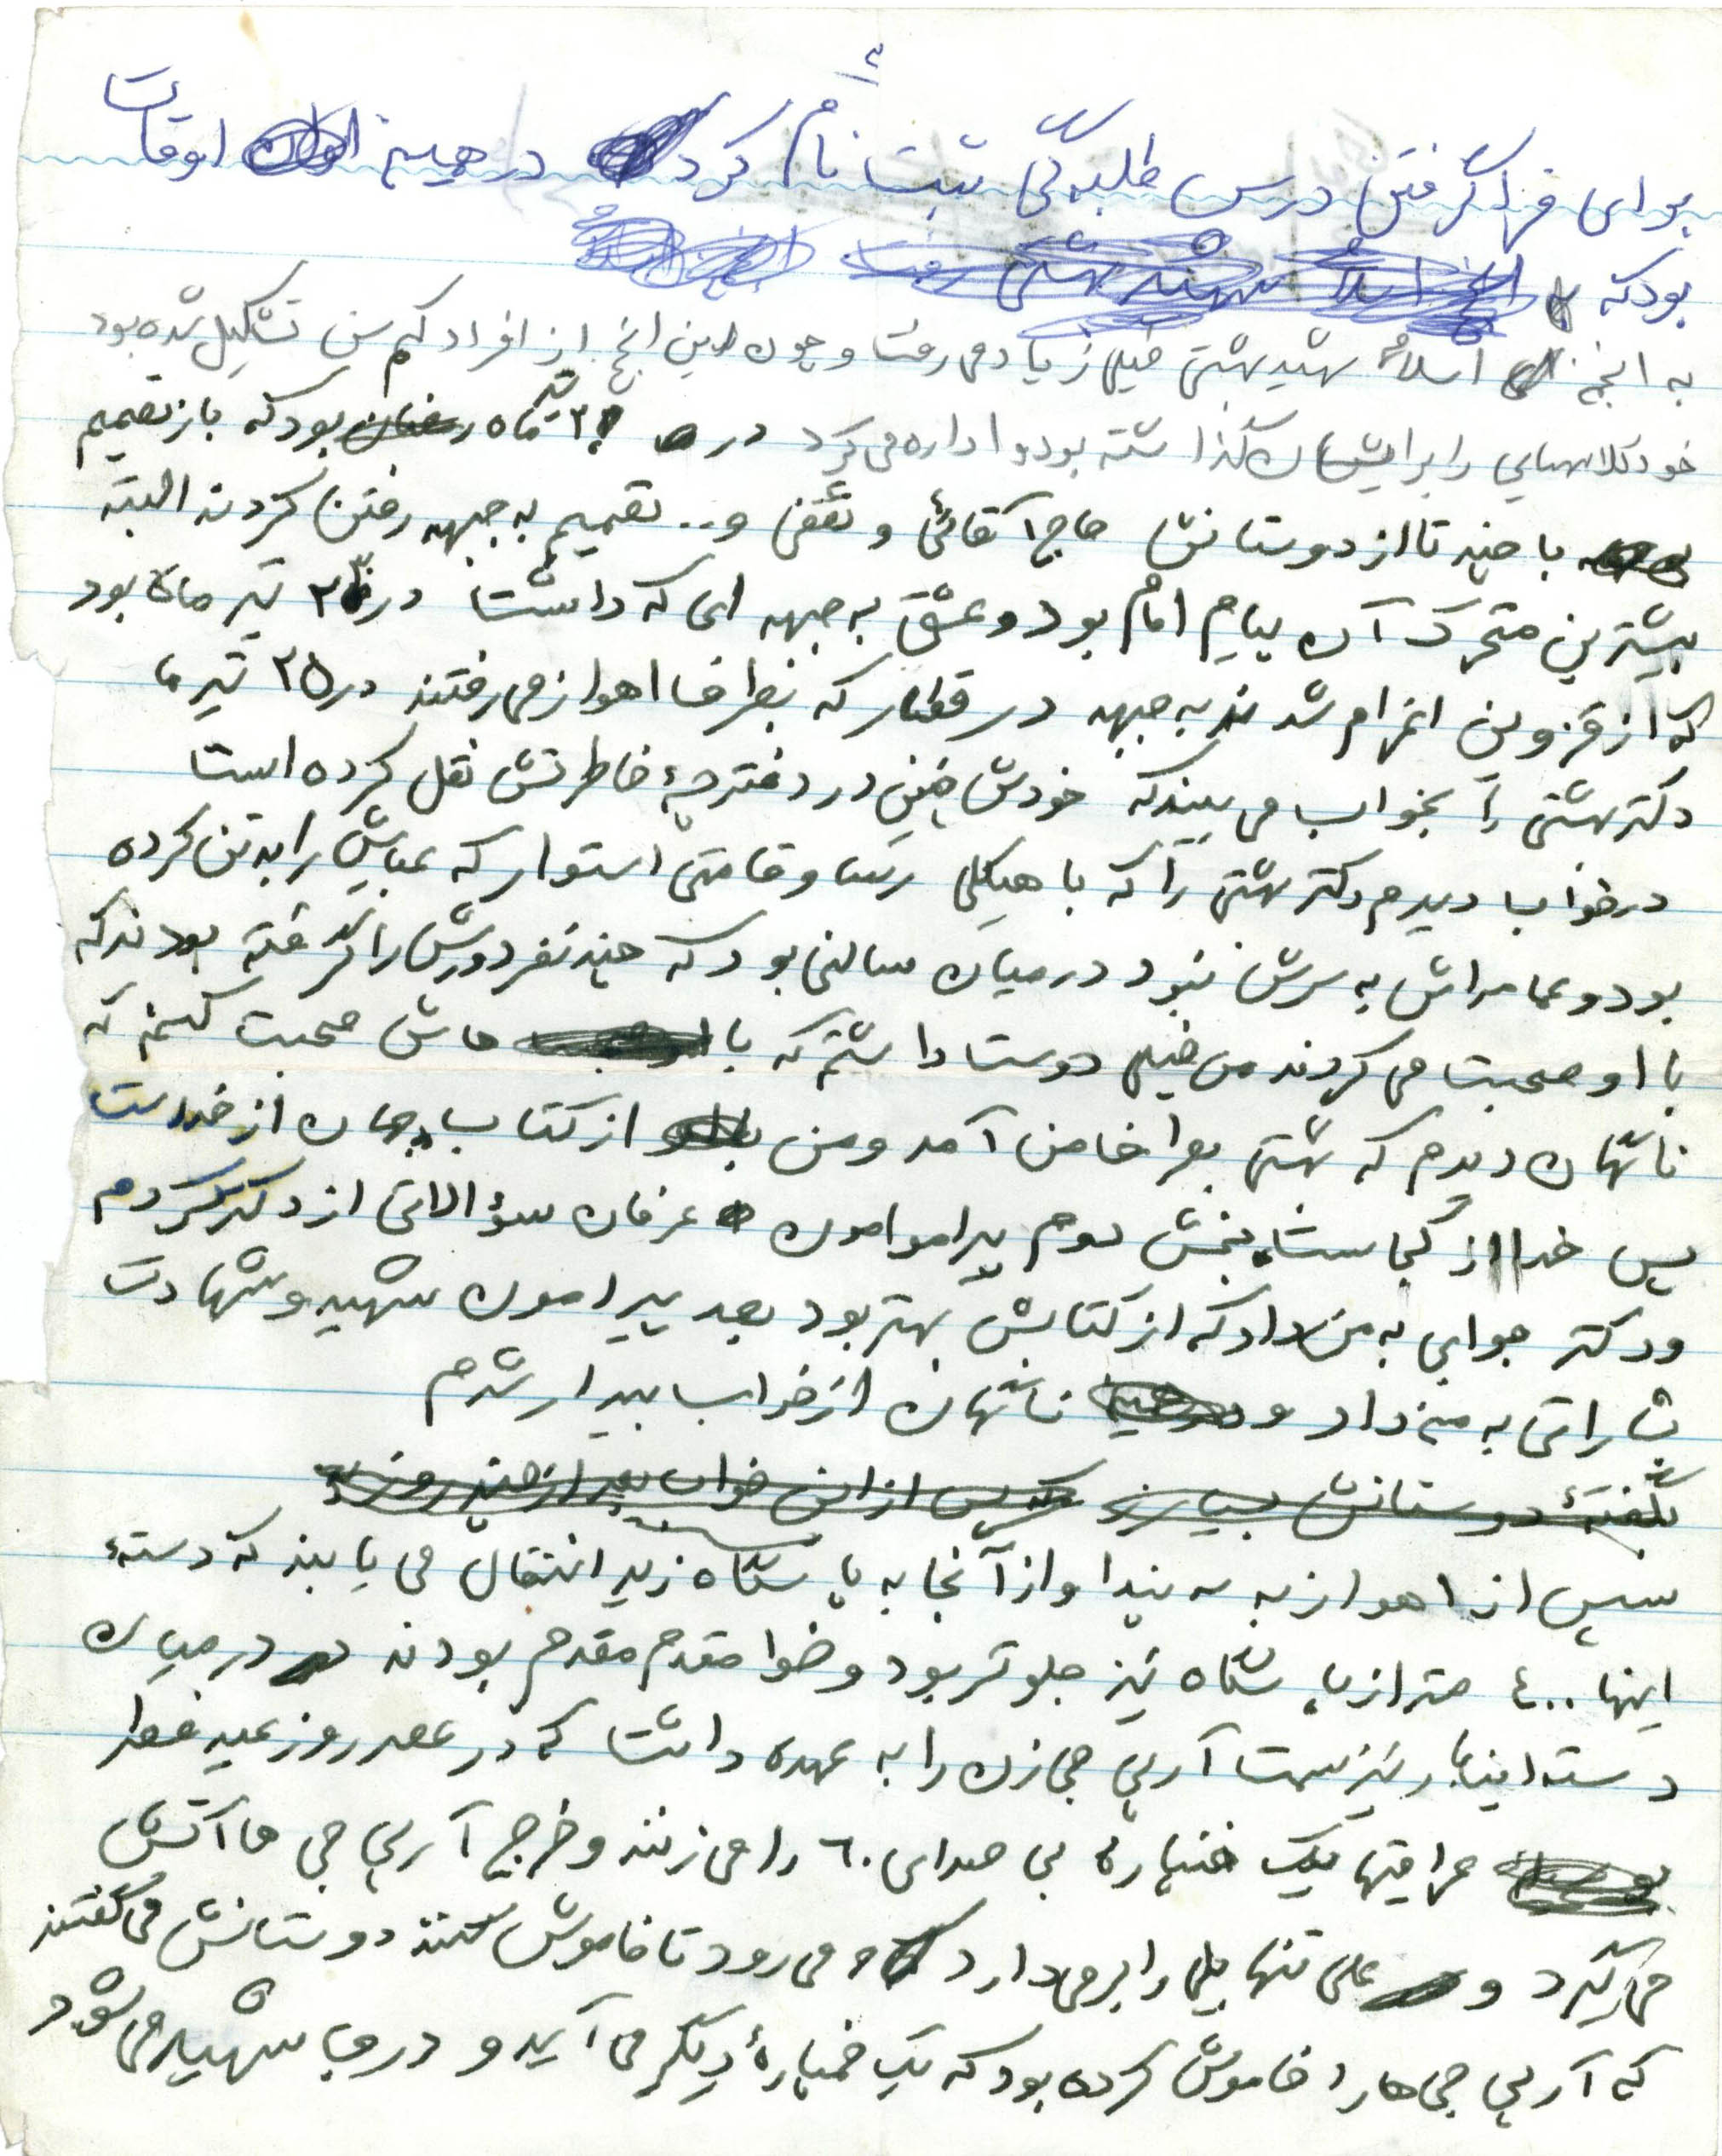 برای فراگرفتن درس طلبه‌گی ثبت نام کرد در همین اوقات
بود که
به انجمن اسلامی شهید بهشتی خیلی زیاد می رفت و چون این انجمن از افراد کم سن تشکیل شده بود
خود کلاسهایی را برایشان گذاشته بود و اداره می کرد در ماه رمضان بود که باز تصمیم
با چند تا از دوستانش حاج آقائی و ثقفی و.. تصمیم به جبهه رفتن کردند البته
بیشترین متحرک آن پیام امام بود و عشق به جبهه ای که داشت در تیر ماه بود
که از قزوین اعزام شدند به جبهه در قطار که بطرف اهواز می رفتند در ۲۵ تیر ما
دکتر بهشتی را بخواب می بیند که خودش چنین در دفترچهٔ خاطرتش نقل کرده است
در خواب دیدم دکتر بهشتی را که با هیکلی رسا و قامتی استوار که عبایش را به تن کرده
بود و عمامه‌اش به سرش نبود در میان سالنی بود که چند نفر دورش را گرفته بودند که
با او صحبت می کردند من خیلی دوست داشتم که با هاش صحبت کنم که
ناگهان دیدم که بهشتی بطرف من آمد و من از کتاب جهان از خداست
پس خدا از کجاست، بخش دوم پیرامامون عرفان سؤالاتی از دکتر کردم
و دکتر جوابی به من داد که از کتابش بهتر بود بعد پیرامون شهید و شهادت
بشاراتی به من داد و ناگهان از خواب بیدار شدم
بگفتهٔ دوستانش پس از این خواب بعد از چند روز
سپس از اهواز به و از آنجا به پاسگاه زید انتقال می یابند که دستهٔ
اینها ۴۰۰ متر از پاسگاه نیز جلوتر بود و خط مقدم مقدم بودند در میان
دسته اینها نیز سمت آرپی جی زن را به عهده داشت که در عصر روز عید فطر
عراقیها یک خمپارهٔ بی صدای ۶۰ را می زنند و خرج آرپی جی ها آتش
می گیرد و علی تنها بیلی را بر می دارد و می رود تا خاموش کند دوستانش می گفتند
که آرپی جی ها را خاموش کرده بود که یک خمپارهٔ دیگر می آید و درجا شهید می شود